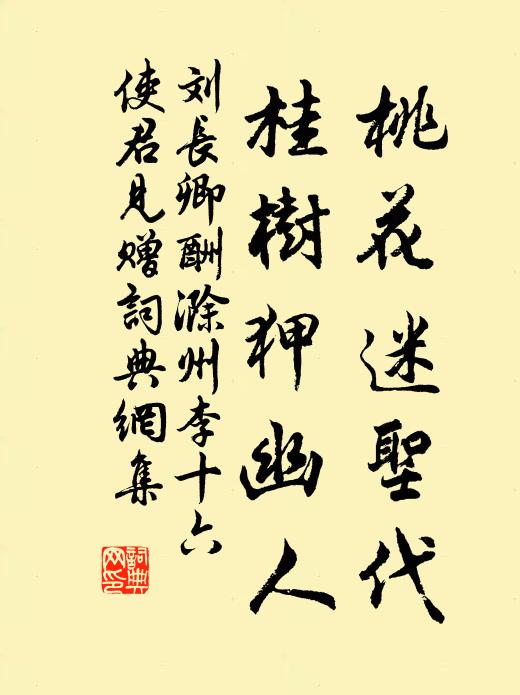 桃花迷聖代
桂樹狎幽人
刘長卿酬滁州李十六
使君見贈詞典網集
詞典網印